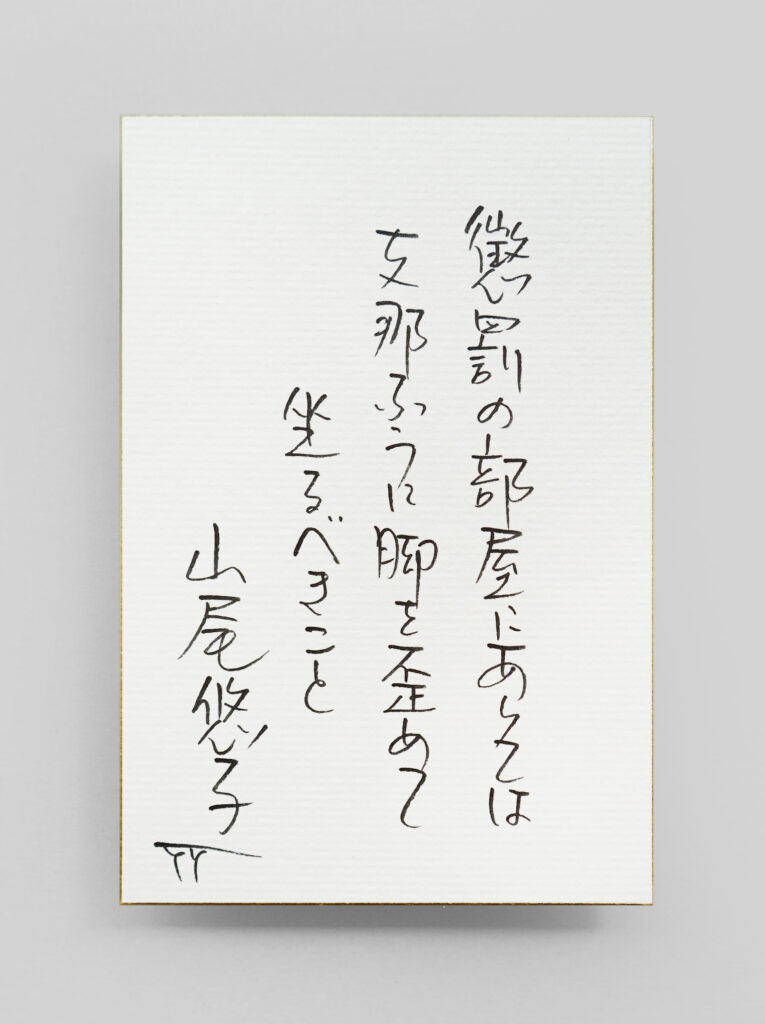 懲罰の部屋にあしては
支那ふうに脚を歪めて
坐るべきこと
山尾悠子
YY